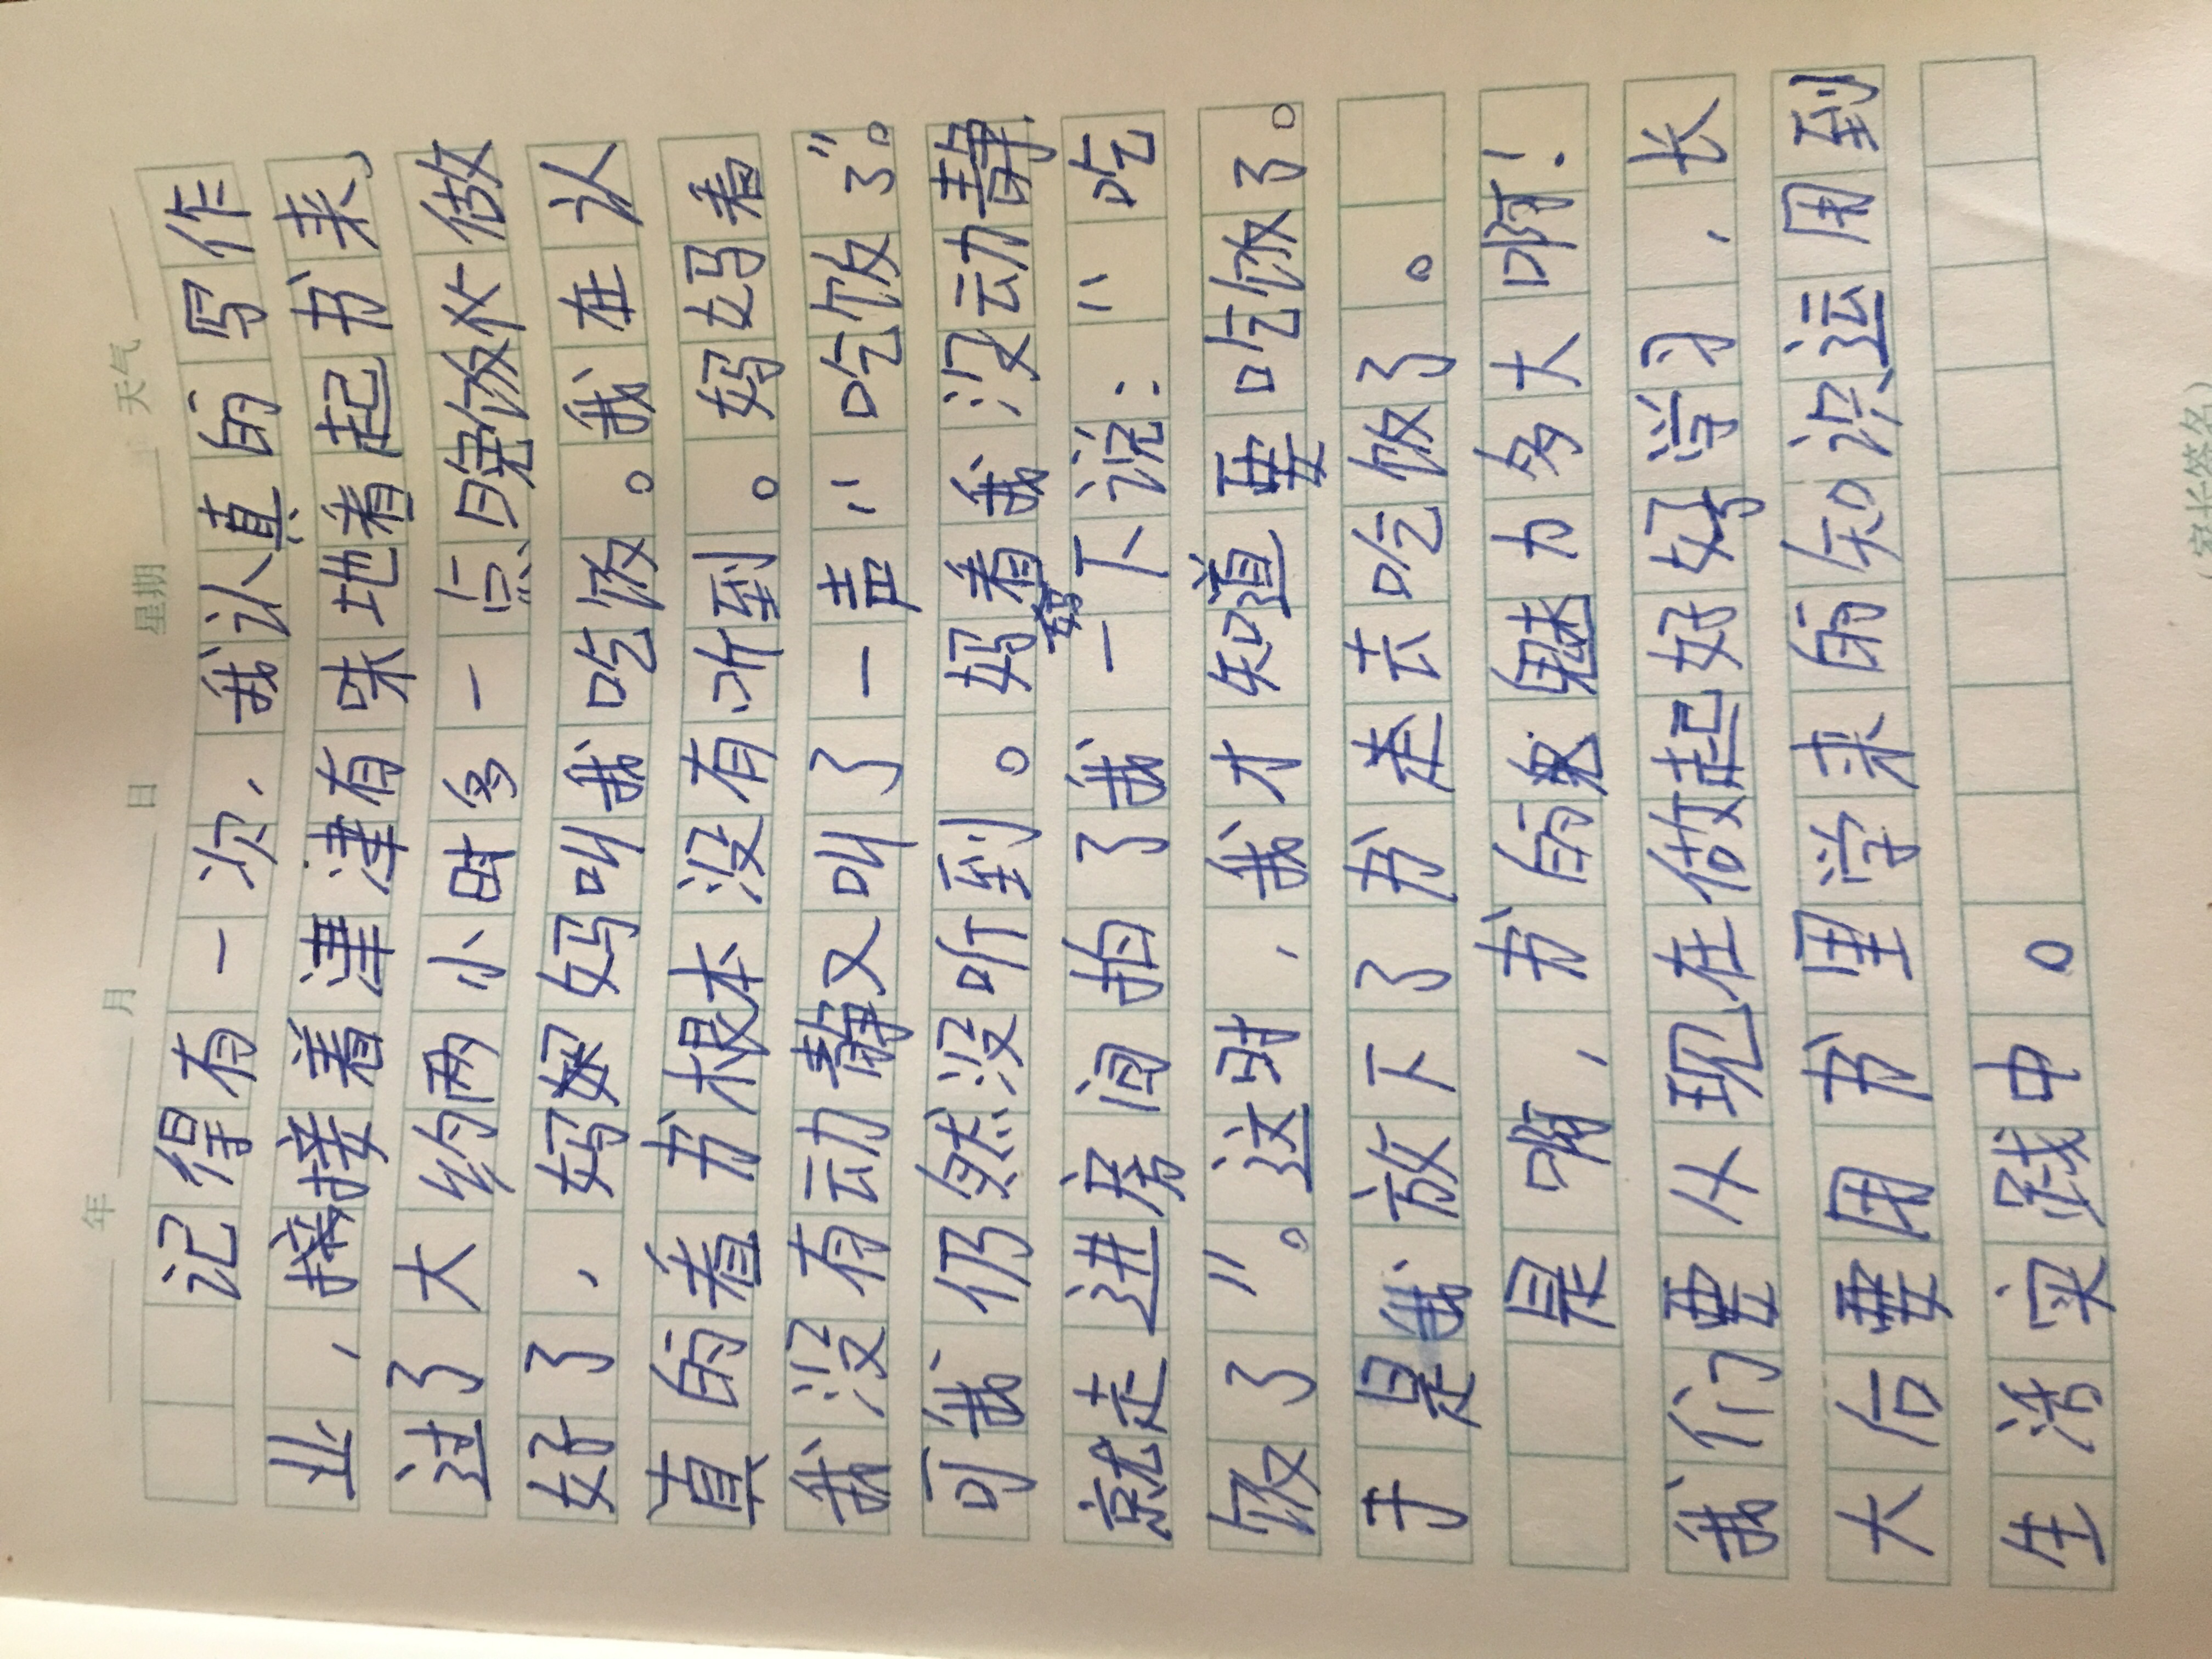 年 月 日 星期 天气
记得有一次，我认真的写作
业，接着津津有味地看起书来，
过了大约两小时多一点晚饭才做
好了，妈妈叫我吃饭。我在认
真的看书根本没有听到。妈妈看
我没有动静又叫了一声“吃饭了”。
可我仍然没听到。妈妈看我没动静
就走进房间拍了我一下说：“吃
饭了”。这时，我才知道要吃饭了。
于是我放下了书走去吃饭了。
是啊，书的魅力多大啊！
我们要从现在做起好好学习，长
大后要用书里学来的知识运用到
生活实践中。
（家长签名）